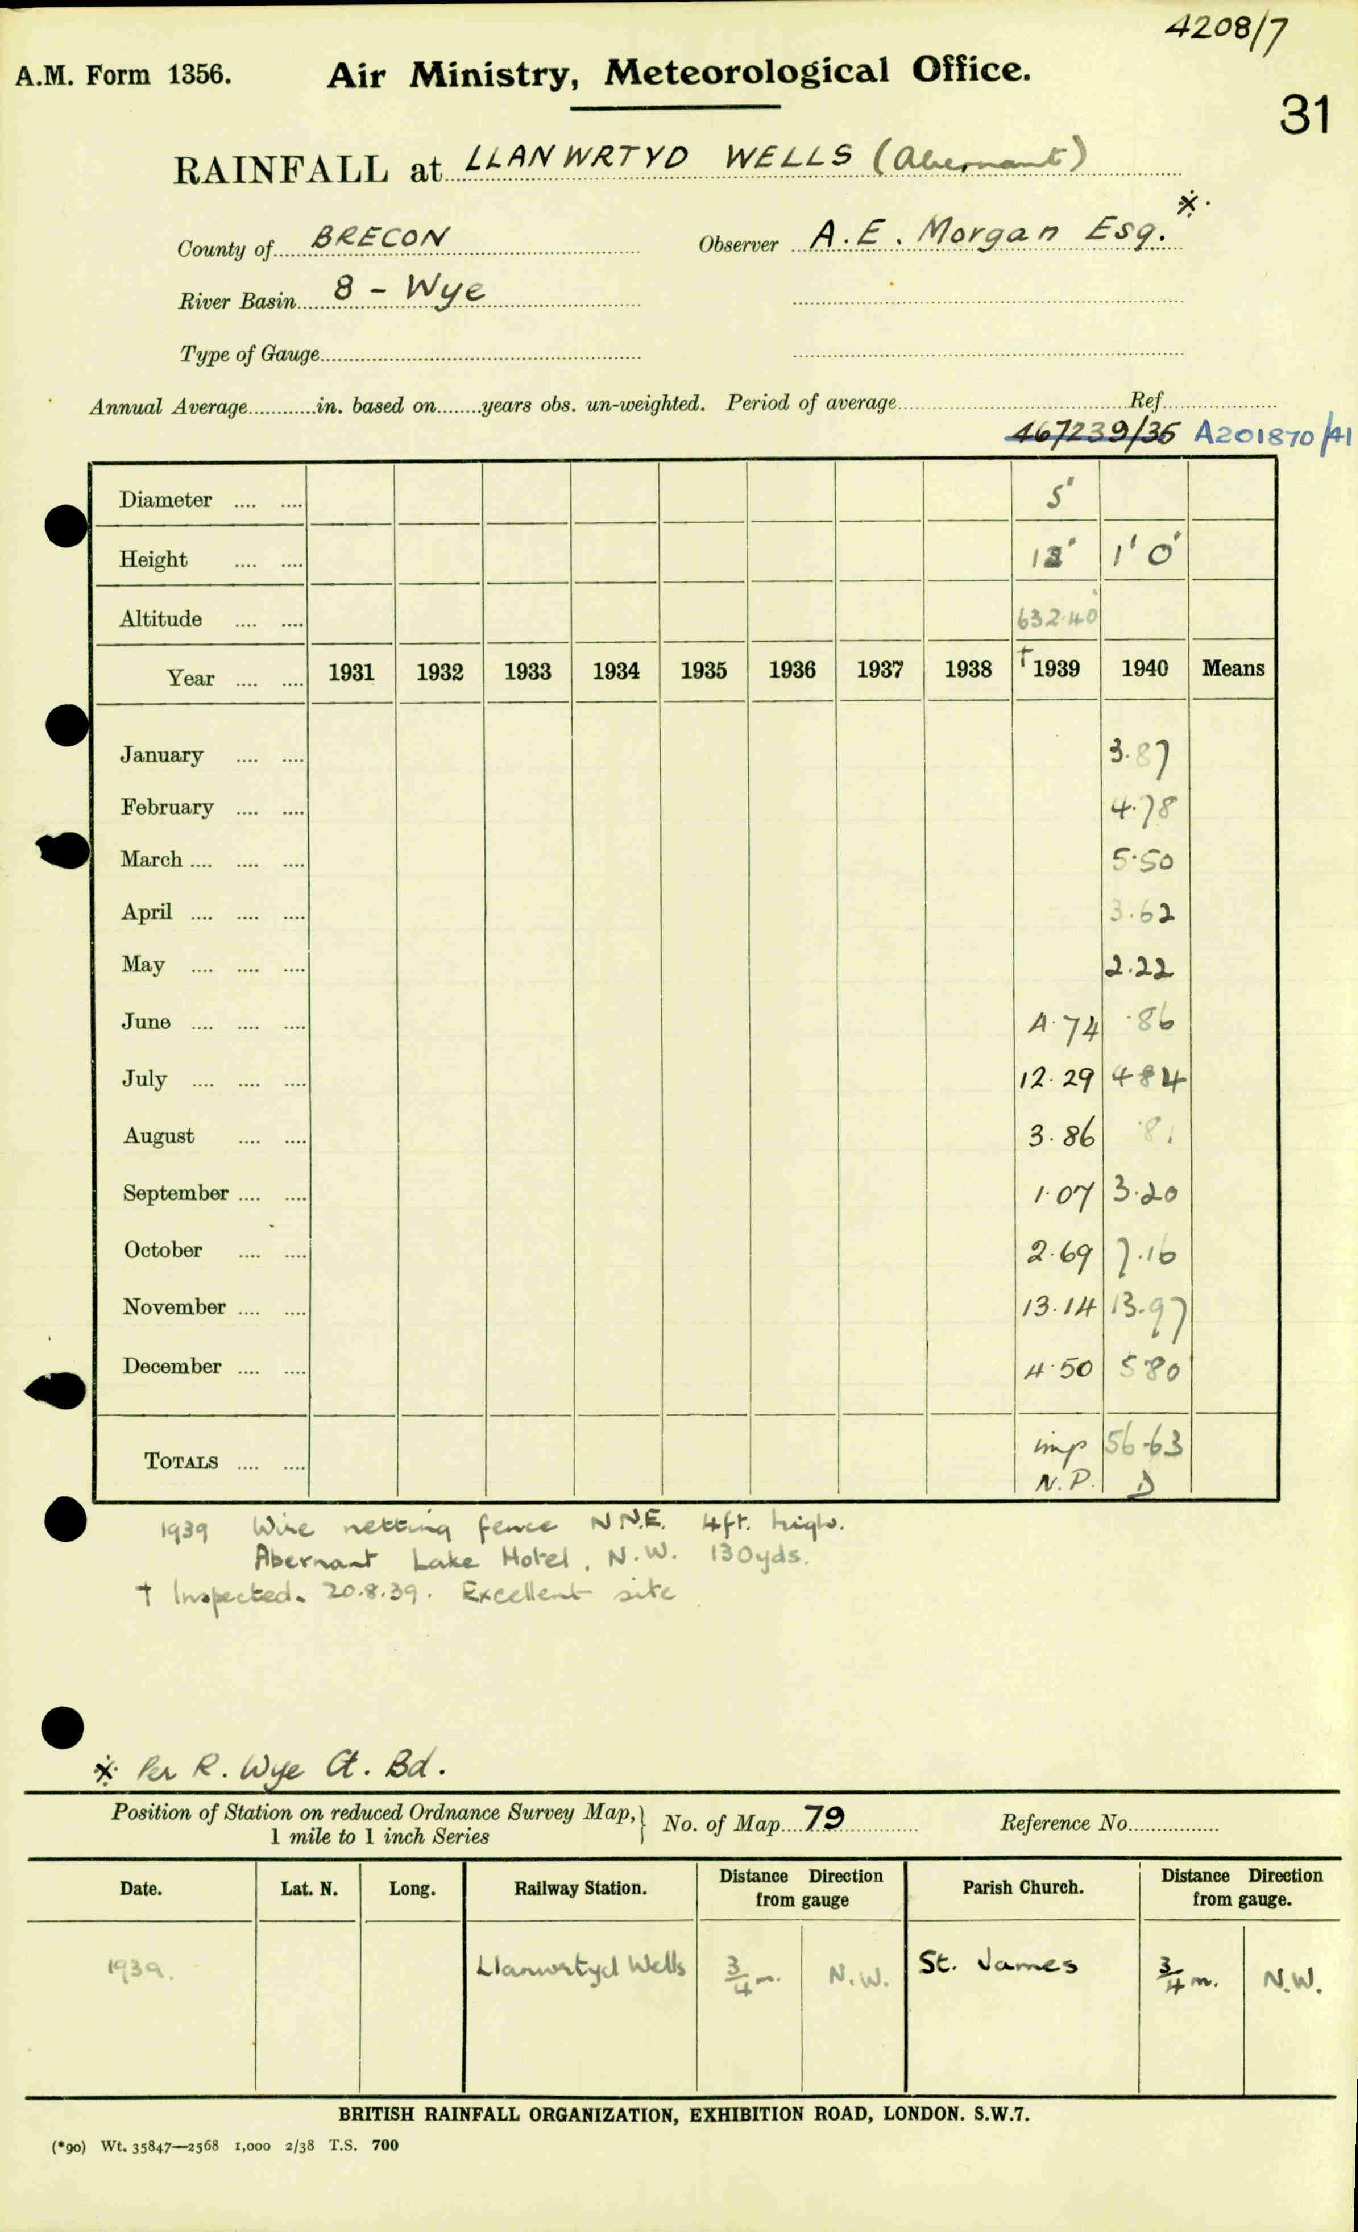 4208/7
A.M. Form 1356. Air Ministry, Meteorological Office.
31
RAINFALL at LLANWRTYD WELLS (Abernant)
County of BRECON Observer A.E. Morgan Esq. ※
River Basin 8 - Wye
Type of Gauge
Annual Average in. based on years obs. un-weighted. Period of average Ref
467239/36 A201870/41
Diameter 5"
Height 12" 1' 0"
Altitude 632.40
Year 1931 1932 1933 1934 1935 1936 1937 1938 †1939 1940 Means
January 3.87
February 4.78
March 5.50
April 3.62
May 2.22
June 4.74 .86
July 12.29 4.84
August 3.86 .81
September 1.07 3.20
October 2.69 7.16
November 13.14 13.97
December 4.50 5.80
TOTALS imp 56.63
N.P. D
1939 Wire netting fence NNE. 4ft. high.
Abernant Lake Hotel, N.W. 130yds.
† Inspected. 20.8.39. Excellent site
※ Per R. Wye Ct. Bd.
Position of Station on reduced Ordnance Survey Map, No. of Map 79 Reference No.
1 mile to 1 inch Series
Date. Lat. N. Long. Railway Station. Distance Direction from gauge Parish Church. Distance Direction from gauge.
1939. Llanwrtyd Wells 3/4 m. N.W. St. James 3/4 m. N.W.
BRITISH RAINFALL ORGANIZATION, EXHIBITION ROAD, LONDON. S.W.7.
(*90) Wt. 35847—2568 1,000 2/38 T.S. 700